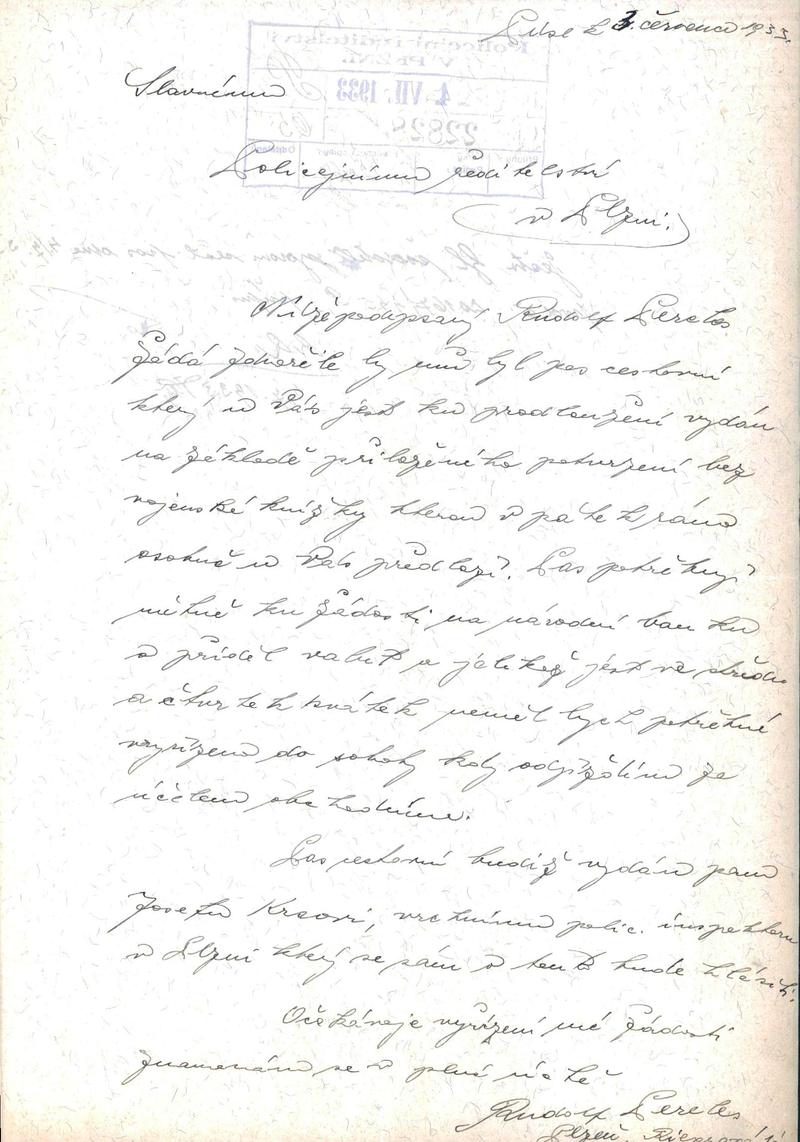 3. července 1933.
Slavnému
Policejnímu ředitelství
v Plzni.
Policejní ředitelství
V PLZNI.
4. VII. 1933
22828
Nížepodepsaný Rudolf Pereles
žádá zdvořile by mu byl pas cestovní
který u Vás jest ku prodloužení vydán
na základě přiloženého potvrzení bez
vojenské knížky kterou v pátek ráno
osobně u Vás předloží. Pas potřebuji
nutně ku žádosti na národní banku
o příděl valut a jelikož jest ve středu
a čtvrtek svátek neměl bych potřebné
vyřízeno do soboty kdy odjíždím za
účelem obchodním.
Pas cestovní budiž vydán panu
Josefu Krsovi, vrchnímu polic. inspektoru
v Plzni který se sám o tent. bude hlásiti.
Očekávaje vyřízení mé žádosti
znamenám se v plné úctě
Rudolf Pereles
Plzeň,